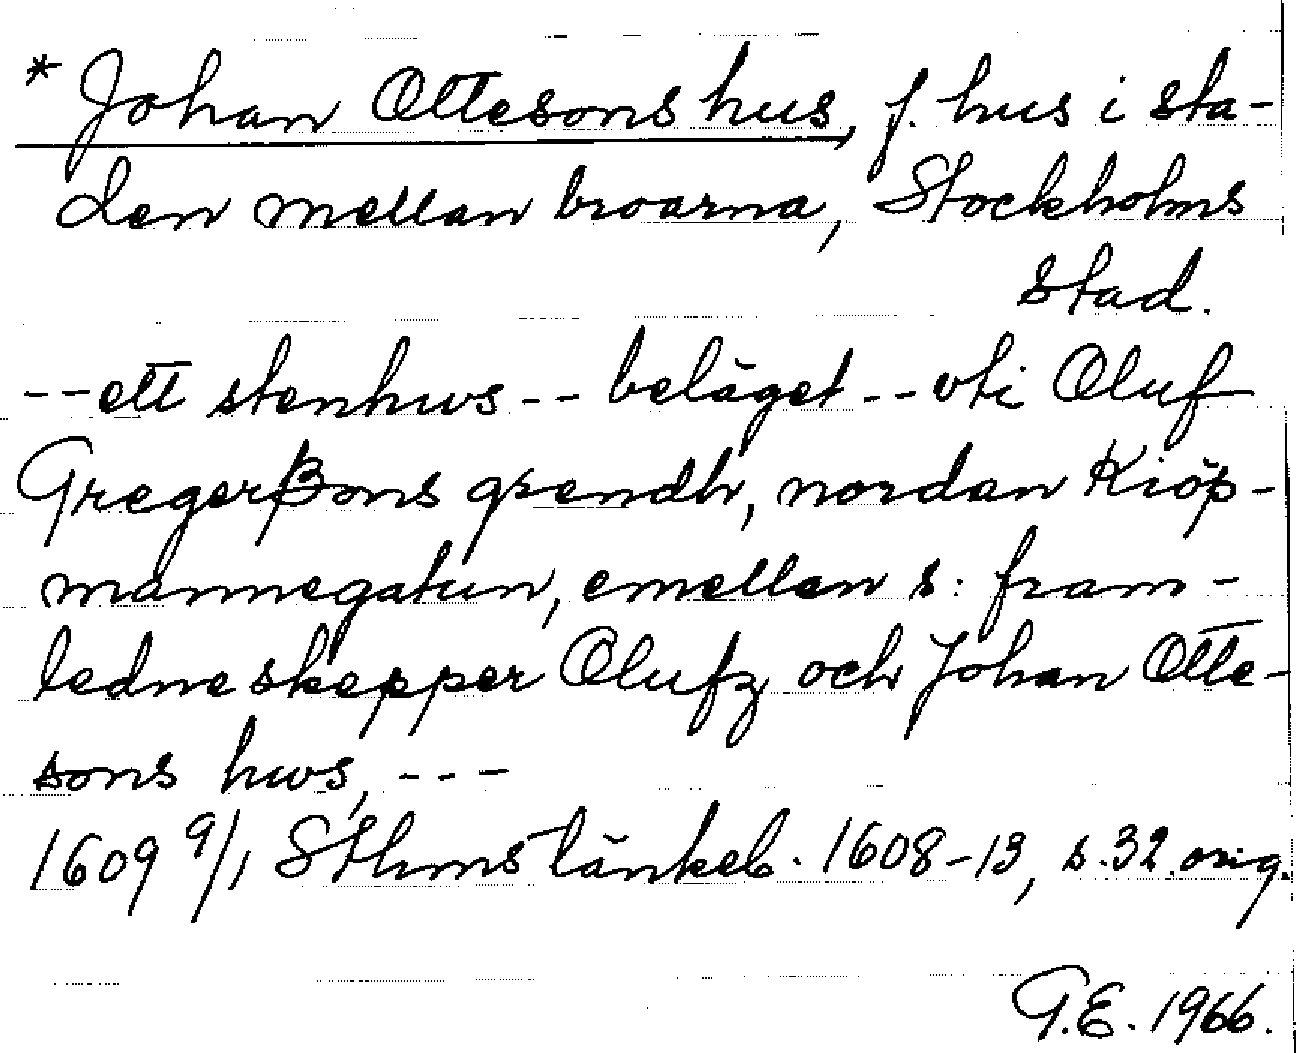 * Johan Ottesons hus, f. hus i sta-
den mellan broarna, Stockholms
stad.
--ett stenhws -- beläget -- vti Oluf
Gregerßons grendh, nordan Kiöp-
mannegatun, emellan s: fram-
ledne skepper Olufz och Johan Otte-
sons hws, ---
1609 9/1 Sthms tänkeb. 1608-13, s. 32. orig.
G.E. 1966.